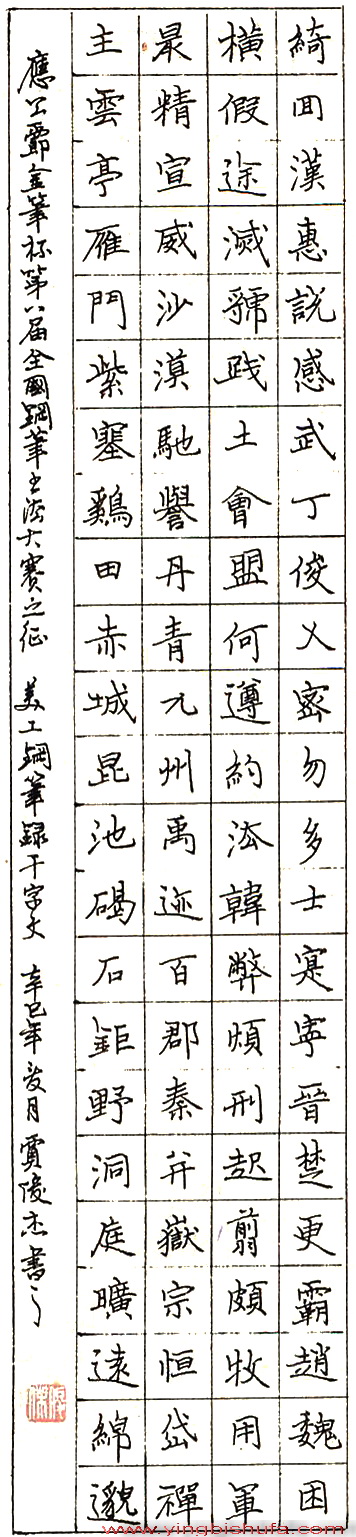 綺回漢惠說感武丁俊乂密勿多士寔寧晉楚更霸趙魏困
橫假途滅虢践土會盟何遵約法韓弊煩刑起翦頗牧用軍
最精宣威沙漠馳譽丹青九州禹迹百郡秦并嶽宗恒岱禪
主雲亭雁門紫塞鷄田赤城昆池碣石鉅野洞庭曠遠綿邈
應公爵金筆杯第八届全國鋼筆书法大賽之征 美工鋼筆録千字文 辛巳年夏月 賈俊杰書
www.yingbishufa.com